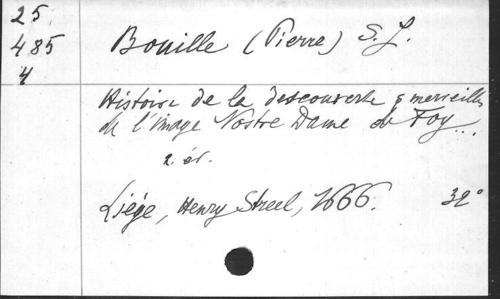 25.
485
4
Bouille (Pierre) S. J.
Histoire de la descouverte & merveilles
de l'image Nostre Dame de Foy...
2. éd.
Liége, Henry Streel, 1666. 32°